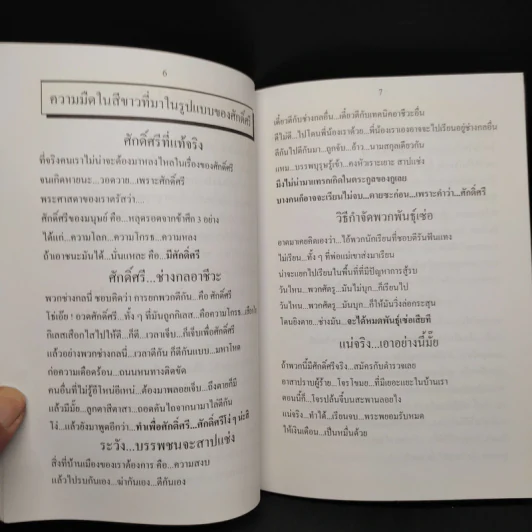 6
ความมืดในสีขาวที่มาในรูปแบบของศักดิ์ศรี
ศักดิ์ศรีที่แท้จริง
ที่จริงคนเราไม่น่าจะต้องมาหลงใหลในเรื่องของศักดิ์ศรี
จนเกิดหายนะ...รอดวาย...เพราะศักดิ์ศรี
พระศาสดาของเราตรัสว่า....
ศักดิ์ศรีของมนุษย์ คือ...หลุดรอดจากข้าศึก 3 อย่าง
ได้แก่...ความโลภ...ความโกรธ...ความหลง
ถ้าเอาชนะมันได้...นั่นแหละ คือ...มีศักดิ์ศรี
ศักดิ์ศรี...ช่างกลอาชีวะ
พวกช่างกลนี่ ชอบคิดว่า การยกพวกตีกัน...คือ ศักดิ์ศรี
โธ่เอ๊ย ! อวดศักดิ์ศรี...ทั้ง ๆ ที่มันถูกกิเลส...คือความโกรธ...
กิเลสเสือกไสไปให้ตี...ก็ตี...เวลาเจ็บ...ก็เจ็บเพื่อศักดิ์ศรี
แล้วอย่างพวกช่างกลนี่...เวลาตีกัน ก็ตีกันแบบ...มหาโหด
ก่อความเดือดร้อน...ถนนหนทางติดขัด
คนอื่นที่ไม่รู้อีโหน่อีเหน่...ต้องมาพลอยเจ็บ...ถึงตายก็มี
แล้วมีมั้ย...ลูกตาสีตาสา...ถอดคันไถจากนามาไล่ตีกัน
โง่...แล้วยังมาพูดอีกว่า...ทำเพื่อศักดิ์ศรี...ศักดิ์ศรีโง่ ๆ น่ะสิ
ระวัง...บรรพชนจะสาปแช่ง
สิ่งที่บ้านเมืองของเราต้องการ คือ...ความสงบ
แล้วไปรบกันเอง...ฆ่ากันเอง...ตีกันเอง
7
เดี๋ยวตีกับช่างกลอื่น...เดี๋ยวตีกับเทคนิคอาชีวะอื่น
ตีไม่ดี...ไปโดนพี่น้องเราด้วย...พี่น้องเราเองอาจจะไปเรียนอยู่ช่างกลอื่น
ตีกันไปตีกันมา...ถูกจับ...อ้าว...นามสกุลเดียวกัน
แหม...บรรพบุรุษรู้เข้า...คงหัวเราะเยาะ สาปแช่ง
มึงไม่น่ามาแทรกเกิดในตระกูลของกูเลย
บางคนก็อาจจะเรียนไม่จบ...ตายซะก่อน...เพราะคำว่า...ศักดิ์ศรี
วิธีกำจัดพวกพันธุ์เซ่อ
อาตมาเคยคิดเองว่า...ไอ้พวกนักเรียนที่ชอบตีรันฟันแทง
ไม่เรียน...ทั้ง ๆ ที่พ่อแม่เขาส่งมาเรียน
น่าจะแยกไปเรียนในพื้นที่ที่มีปัญหาการสู้รบ
วันไหน...พวกศัตรู...มันไม่บุก...ก็เรียนไป
วันไหน...พวกศัตรู...มันบุก...ก็ให้มันวิ่งล่อกระสุน
โดนยิงตาย...ช่างมัน...จะได้หมดพันธุ์เซ่อเสียที
แน่จริง...เอาอย่างนี้มั้ย
ถ้าพวกนี้มีศักดิ์ศรีจริง...สมัครกับตำรวจเลย
อาสาปราบผู้ร้าย...โจรใจหมา...ที่มีเยอะแยะในบ้านเรา
ตอนนี้ก็...โจรปล้นขึ้นบนสะพานลอยไง
แน่จริง...ทำได้...เรียนจบ...พระพยอมรับหมด
ให้เงินเดือน...เป็นหมื่นด้วย